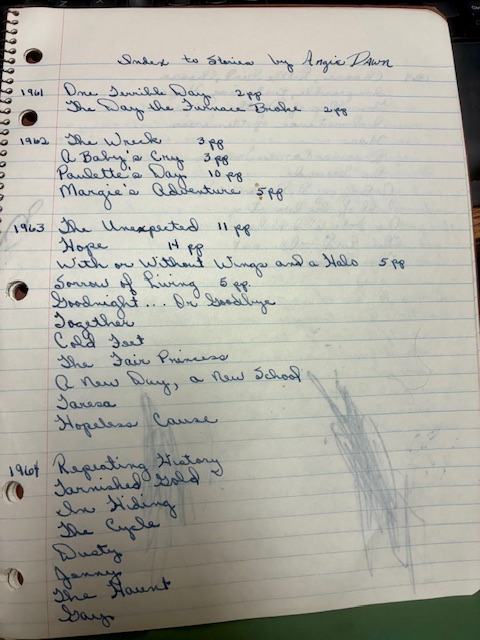 Index to Stories by Angie Dawn
1961 One Terrible Day 2pp
The Day the Furnace Broke 2pp
1962 The Wreck 3pp
A Baby's Cry 3pp
Paulette's Day 10 pp
Margie's Adventure 5pp
1963 The Unexpected 11 pp
Hope 14 pp
With or Without Wings and a Halo 5pp
Sorrow of Living 5 pp.
Goodnight... Or Goodbye
Together
Cold Feet
The Fair Princess
A New Day, a New School
Taresa
Hopeless Cause
1964 Repeating History
Tarnished Gold
In Hiding
The Cycle
Dusty
Jenny
The Haunt
Gay